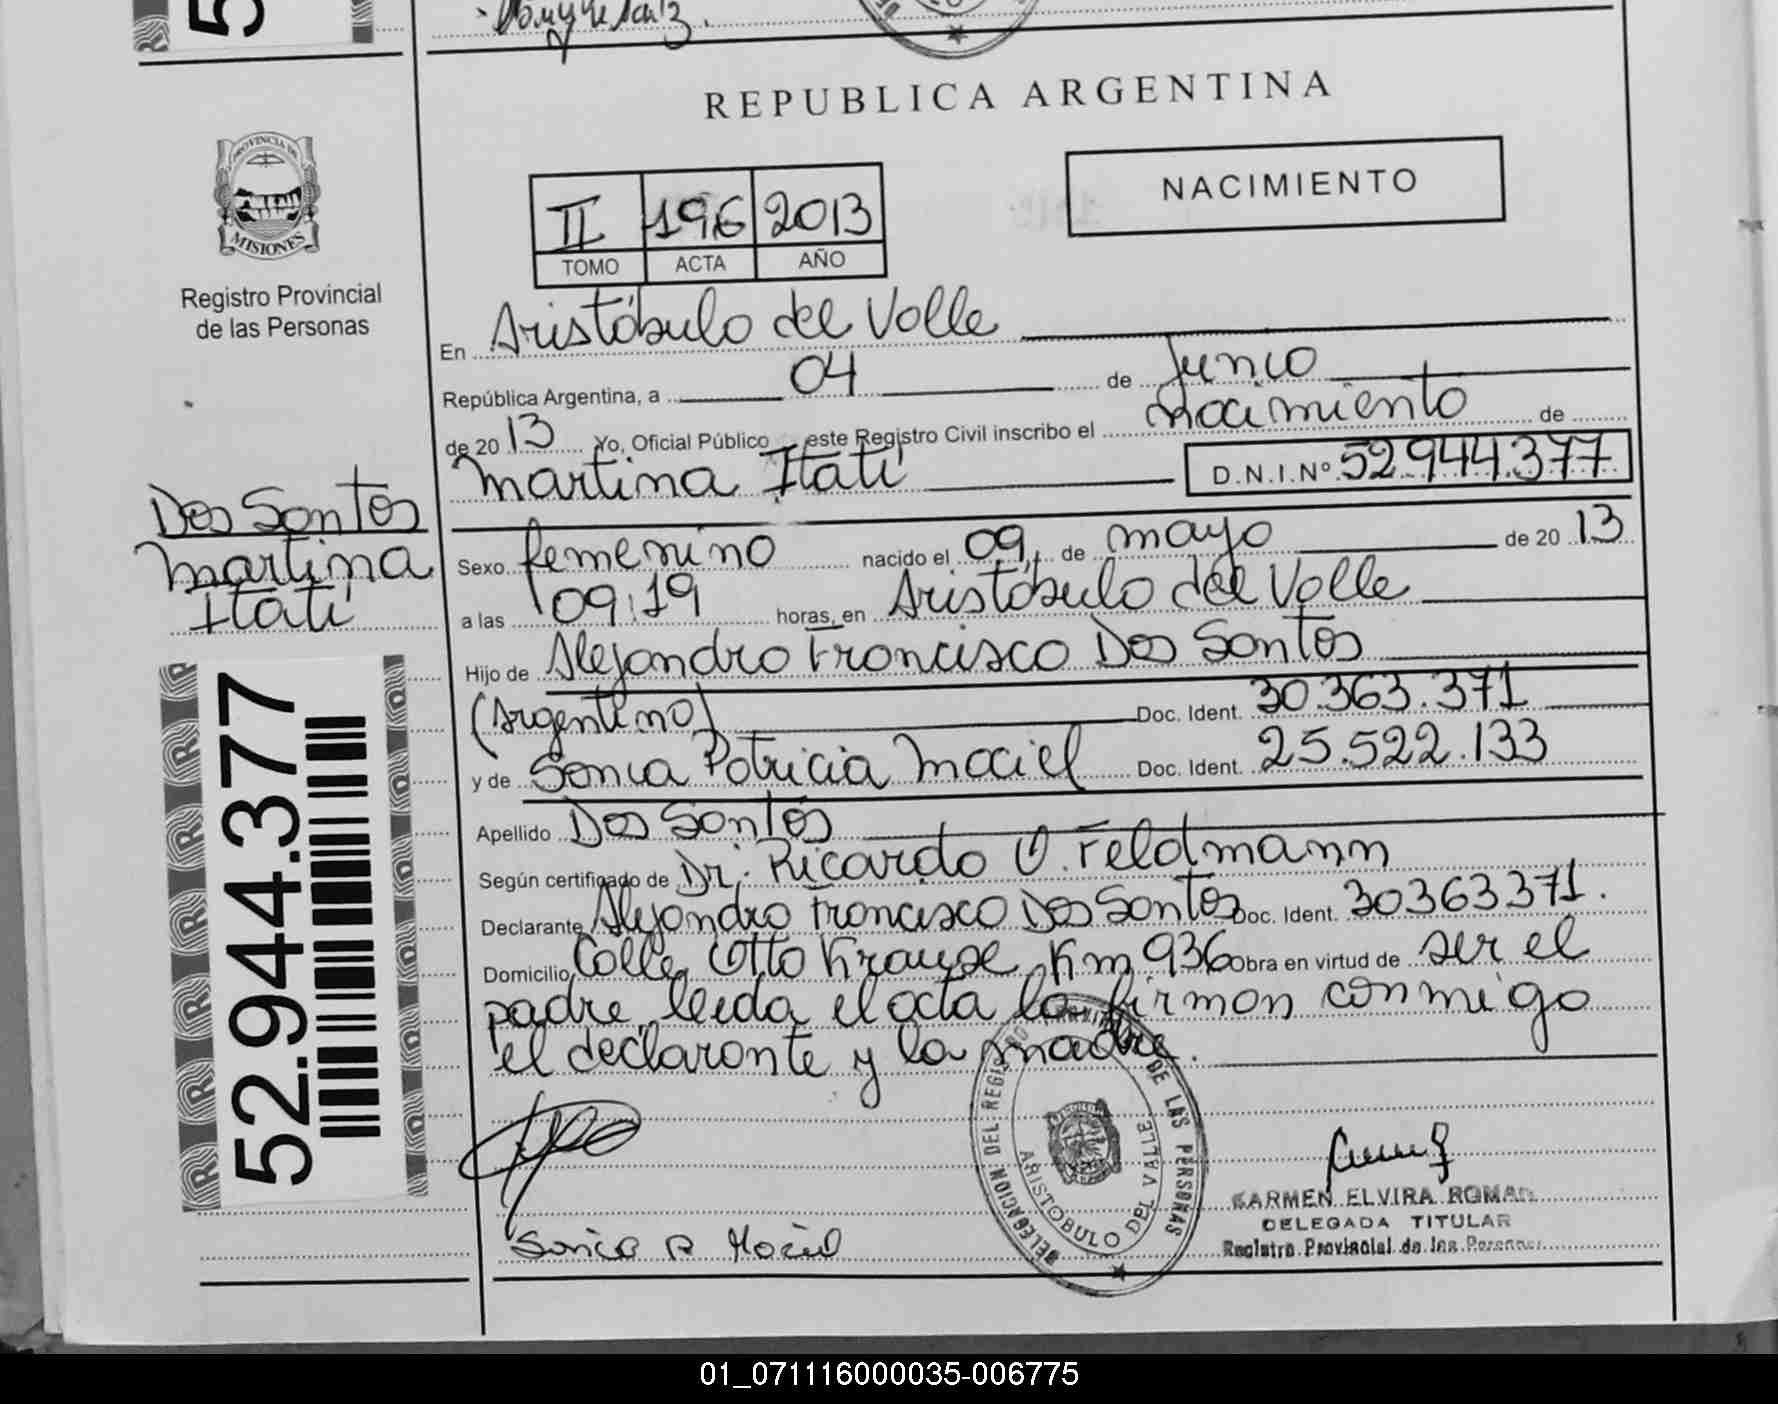 REPUBLICA ARGENTINA
NACIMIENTO
PROVINCIA DE
MISIONES
Registro Provincial
de las Personas
II 196 2013
TOMO ACTA AÑO
En Aristóbulo del Valle
República Argentina, a 04 de Junio
de 2013 Yo, Oficial Público este Registro Civil inscribo el nacimiento de
Martina Itatí D.N.I.Nº 52.944.377
Dos Santos
Martina
Itatí
Sexo femenino nacido el 09 de mayo de 2013
a las 09:19 horas, en Aristóbulo del Valle
Hijo de Alejandro Francisco Dos Santos
(Argentino) Doc. Ident. 30.363.371
y de Sonia Patricia Maciel Doc. Ident. 25.522.133
Apellido Dos Santos
Según certificado de Dr. Ricardo O. Feldmann
Declarante Alejandro Francisco Dos Santos Doc. Ident. 30363371.
Domicilio Calle Otto Krause Km 936 Obra en virtud de ser el
padre, leída el acta la firman conmigo
el declarante y la madre.
52.944.377
DELEGACION DEL REGISTRO PROVINCIAL DE LAS PERSONAS
ARISTOBULO DEL VALLE
Sonia P Maciel
CARMEN ELVIRA ROMAN
DELEGADA TITULAR
Registro Provincial de las Personas
01_071116000035-006775